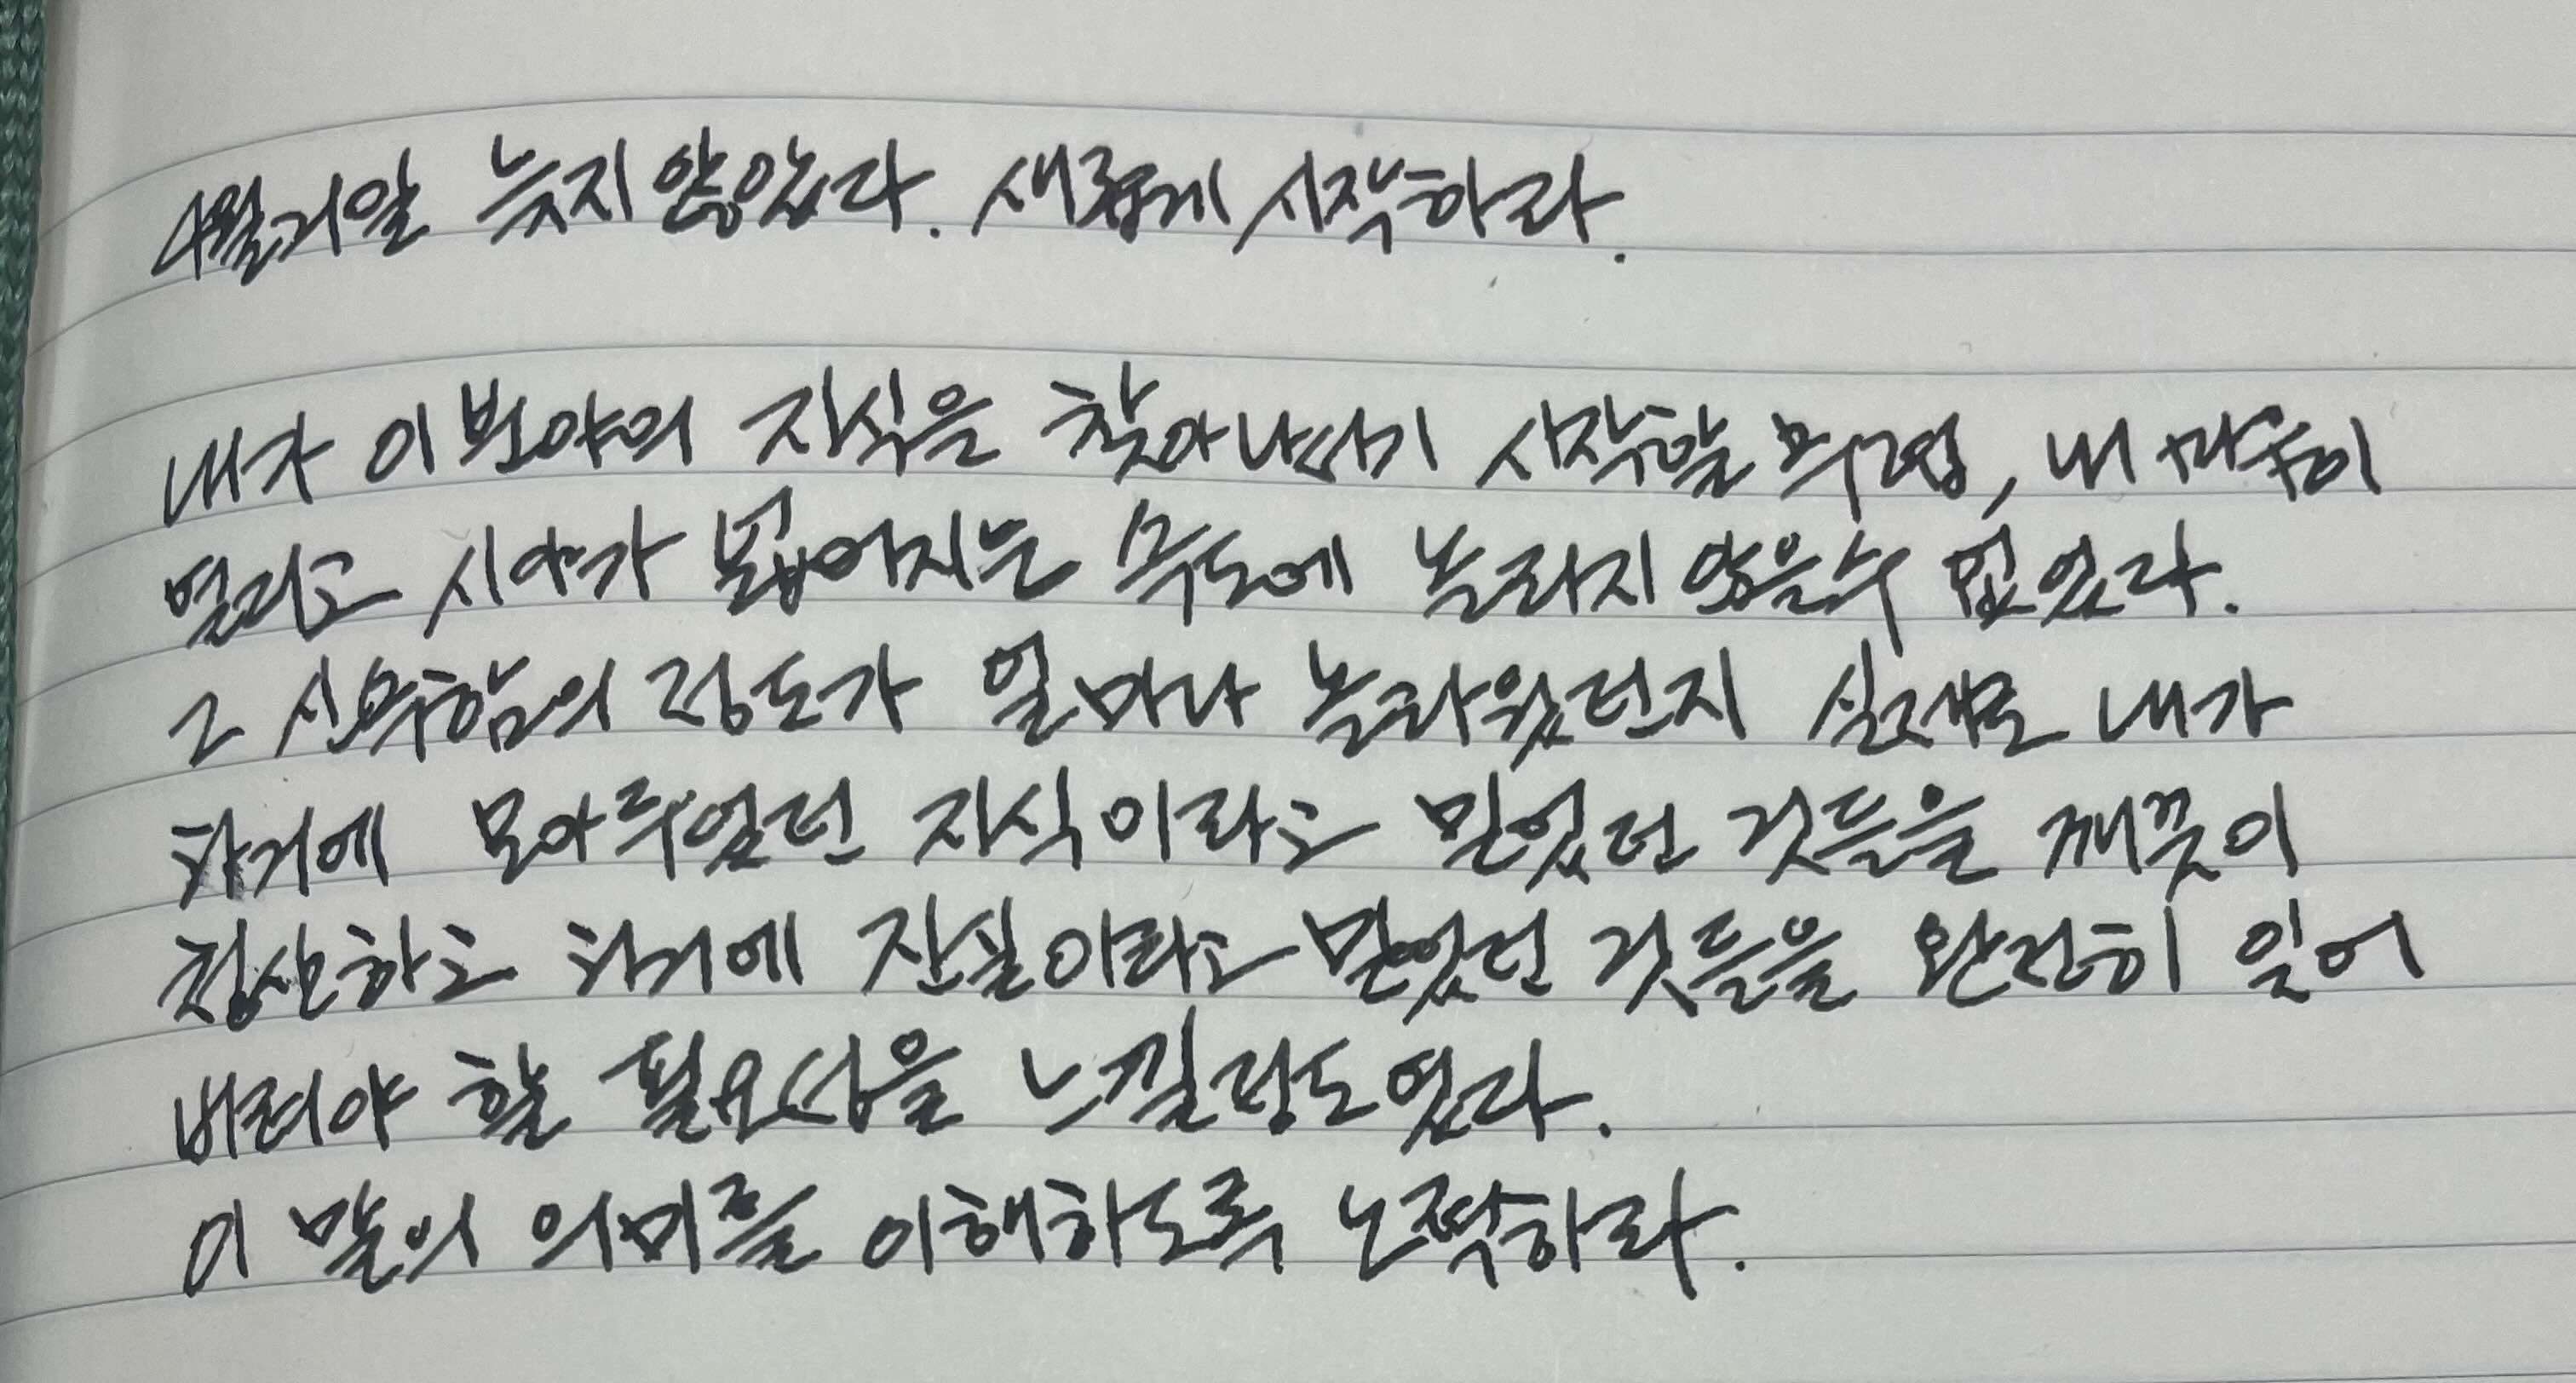 4월2일 늦지 않았다. 새롭게 시작하라.
내가 이 분야의 지식을 찾아나가기 시작할 무렵, 내 마음이
열리고 시야가 넓어지는 속도에 놀라지 않을수 없었다.
그 신속함의 정도가 얼마나 놀라웠던지 실제로 내가
과거에 모아두었던 지식이라고 믿었던 것들을 깨끗이
청산하고 과거에 진실이라고 믿었던 것들을 완전히 잊어
버려야 할 필요성을 느낄정도였다.
이 말의 의미를 이해하도록 노력하라.